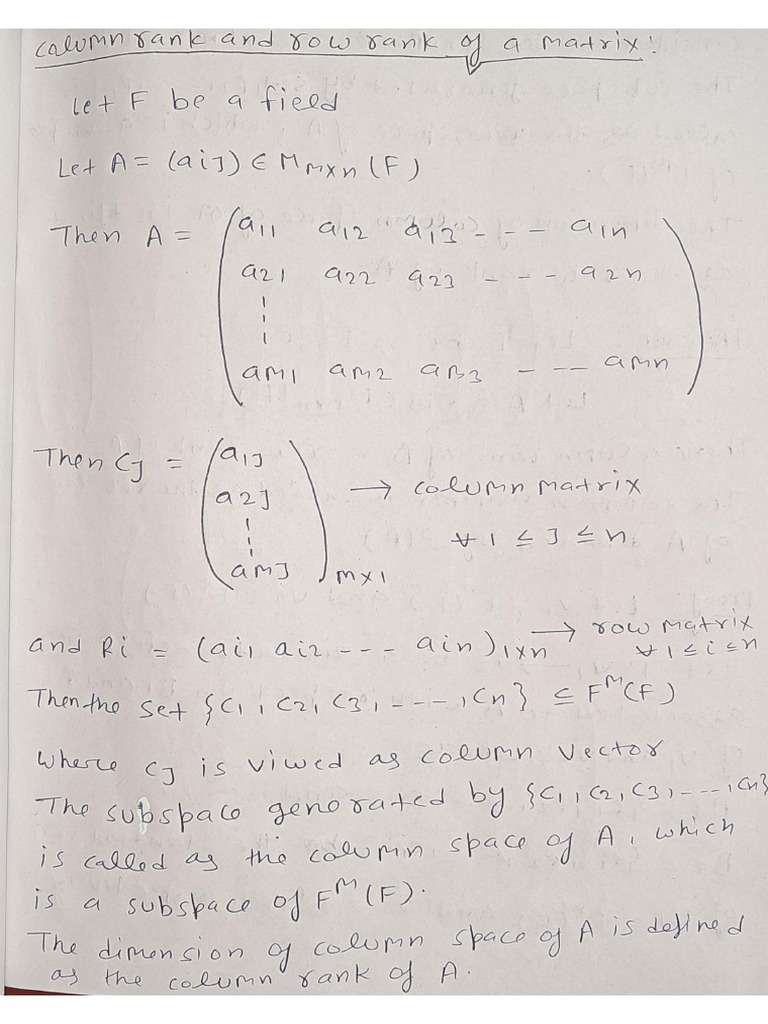 column rank and row rank of a matrix:
Let F be a field
Let A = (aij) ∈ Mm×n (F)
Then A = (a11 a12 a13 - - - a1n
a21 a22 a23 - - - a2n
¦
am1 am2 am3 - - - amn)
Then Cj = (a1j
a2j
¦
amj)m×1 → column matrix
∀ 1 ≤ j ≤ n
and Ri = (ai1 ai2 - - - ain)1×n → row matrix
∀ 1 ≤ i ≤ n
Then the set {C1, C2, C3, - - - , Cn} ⊆ F^m(F)
where Cj is viwed as column vector
The subspace generated by {C1, C2, C3, - - -, Cn}
is called as the column space of A, which
is a subspace of F^m(F).
The dimension of column space of A is defined
as the column rank of A.